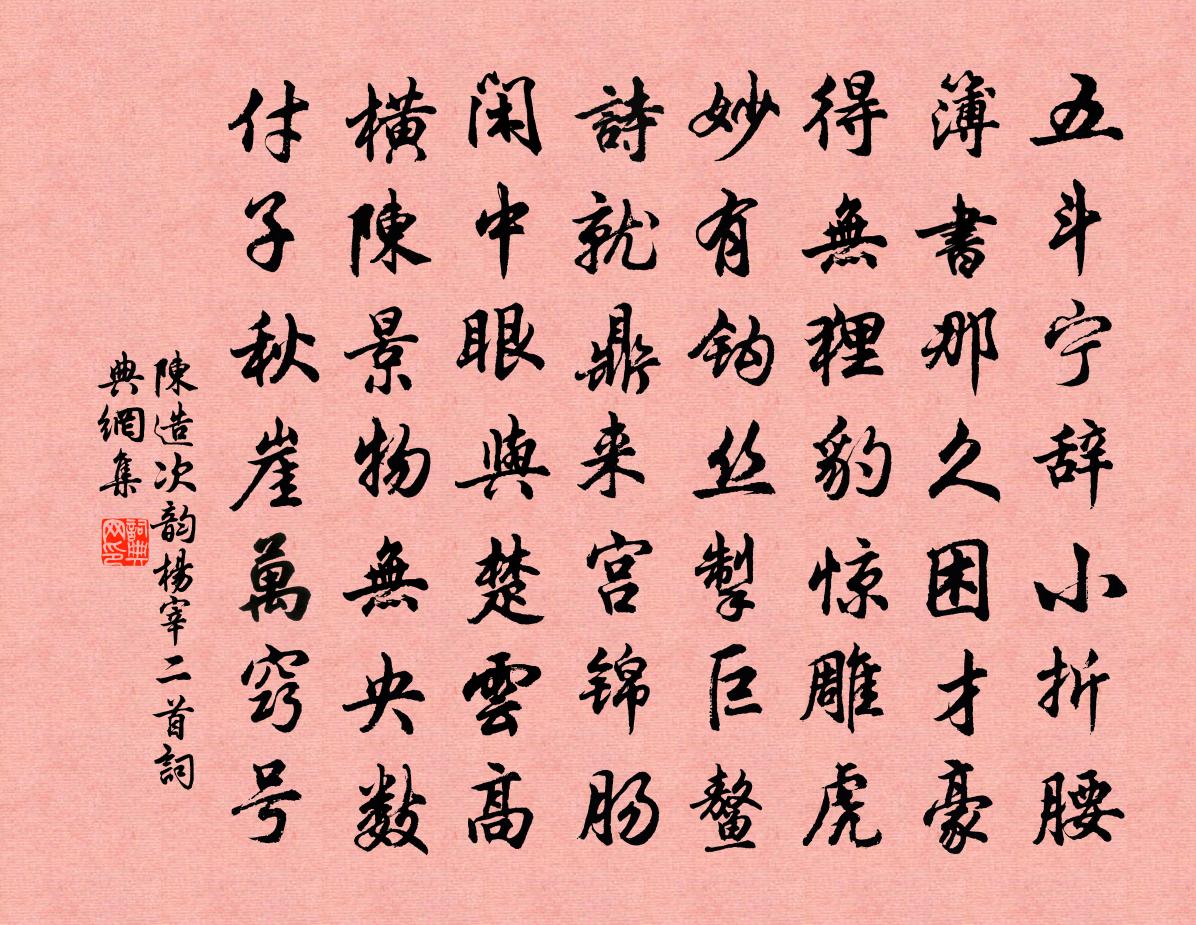 五斗宁辞小折腰
簿書那久困才豪
得無狸豹惊雕虎
妙有钩丝掣巨鳌
詩就鼎来宫锦肠
闲中眼與楚雲高
横陳景物無央数
付子秋崖萬窍号
陳造次韵楊宰二首詞
典網集
詞典
网印